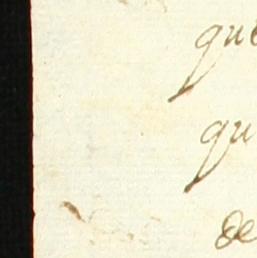 que
qu
de